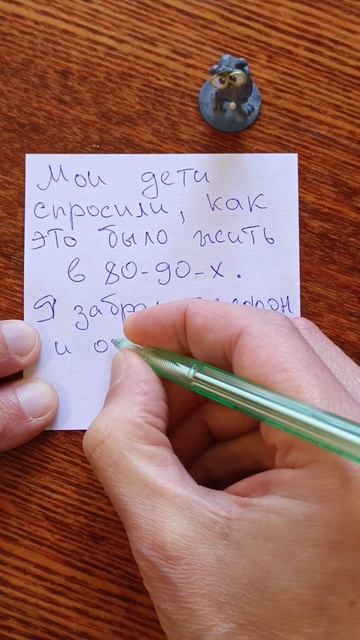 Мои дети
спросили, как
это было жить
в 80-90-х.
Я
и